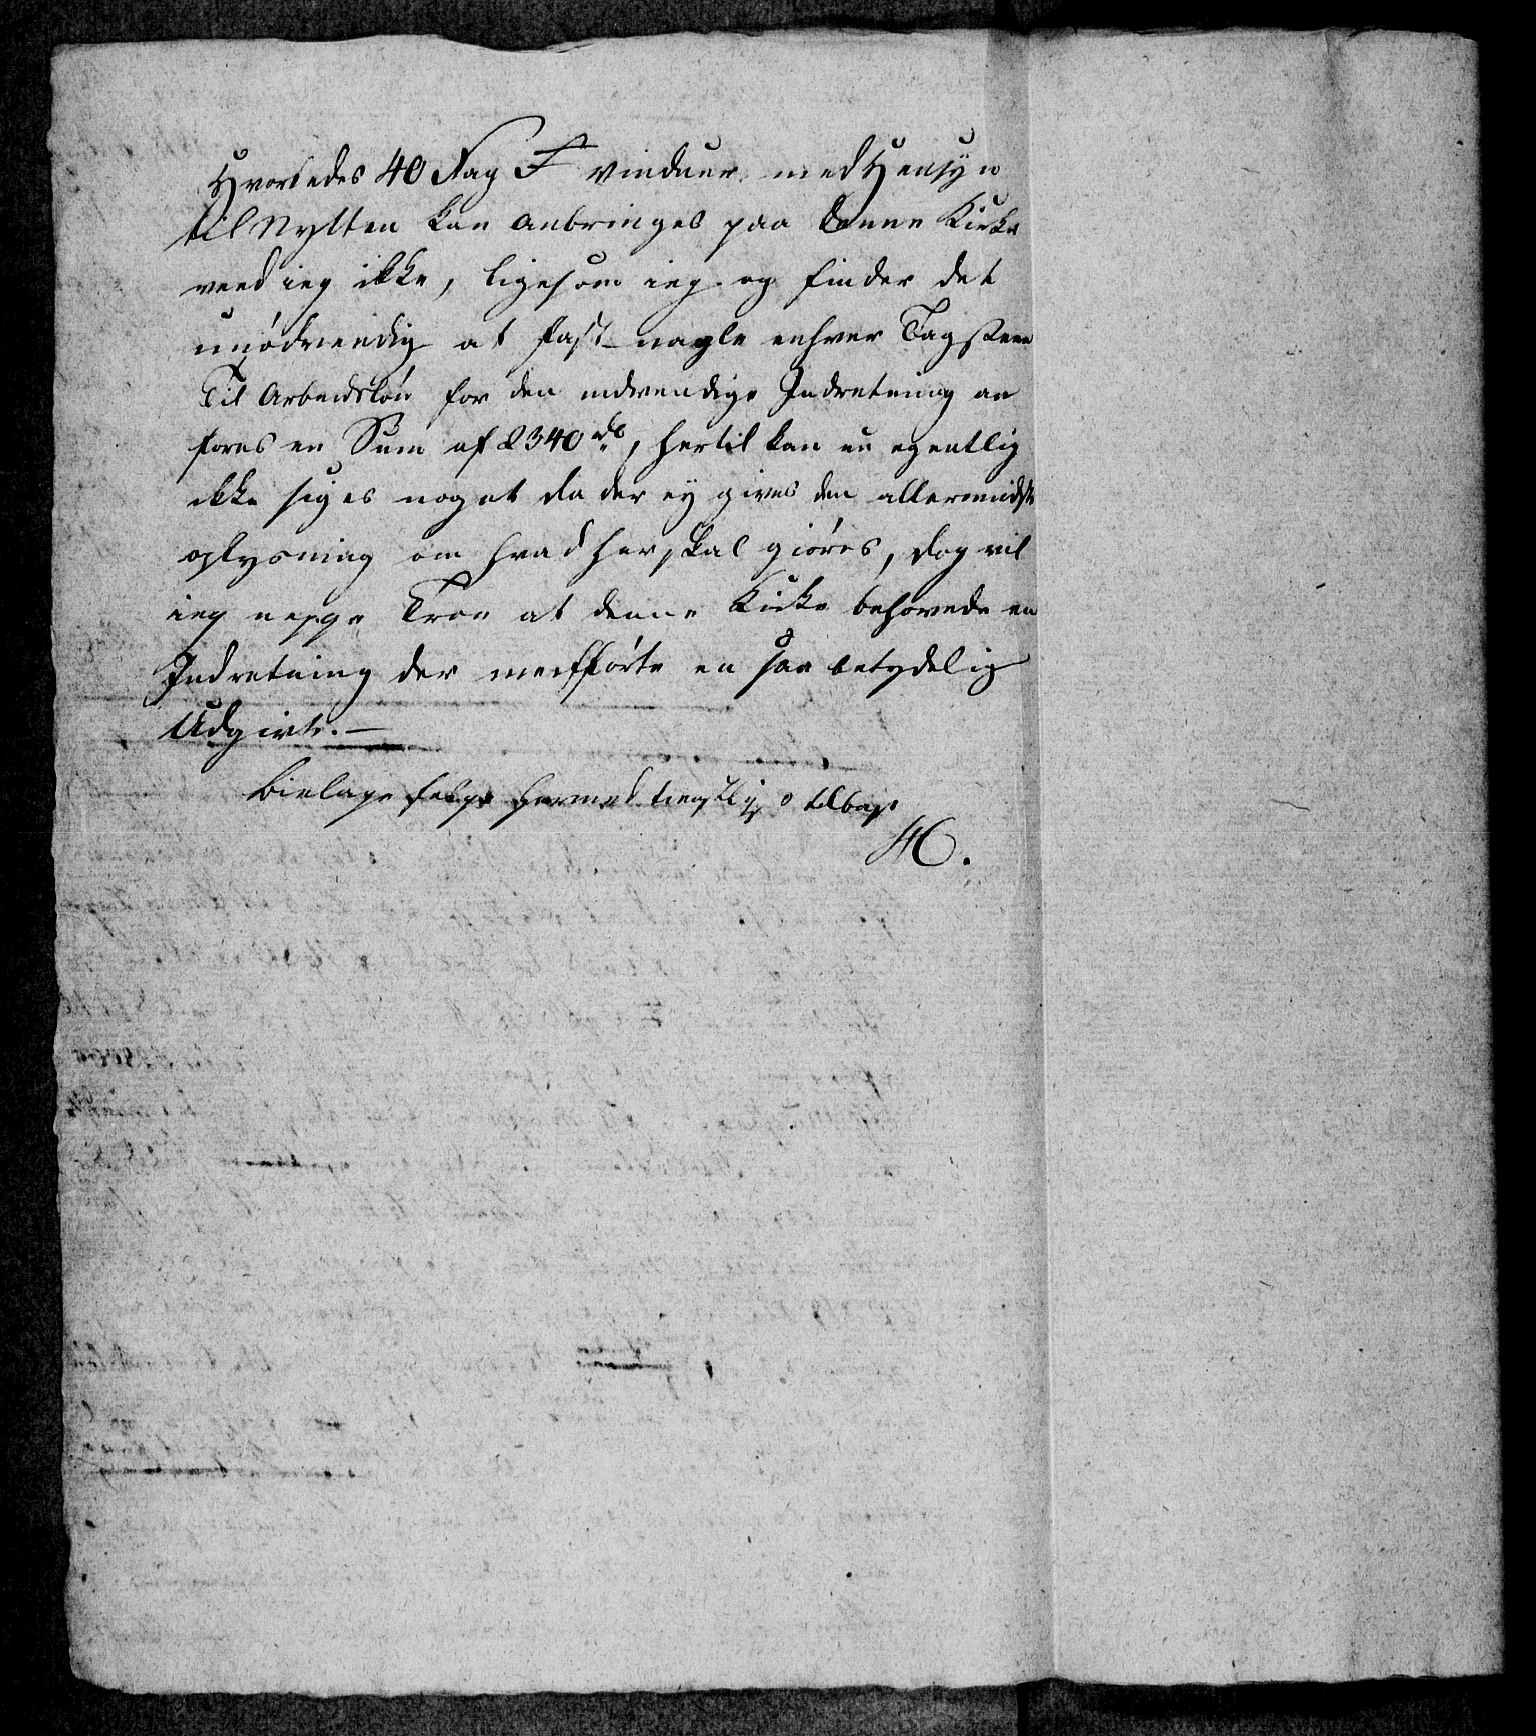 Hvorledes 40 Fag F vinduer med Hensyn
til Nytten kan anbringes paa denne Kirke
veed ieg ikke, ligesom ieg og finder det
unødvendig at fast-nagle enhver Tagsteen
Til Arbeidsløn for den indvendige Indretning an
føres en Sum af 2340 rd, hertil kan nu egentlig
ikke siges noget da der ey gives den allermindste
oplysning om hvad her skal giøres, dog vil
ieg neppe Troe at denne Kirke behøvede en
Indretning der medførte en saa betydelig
Udgivt.—
Bielage følge hermed tienstlig tilbage
H.